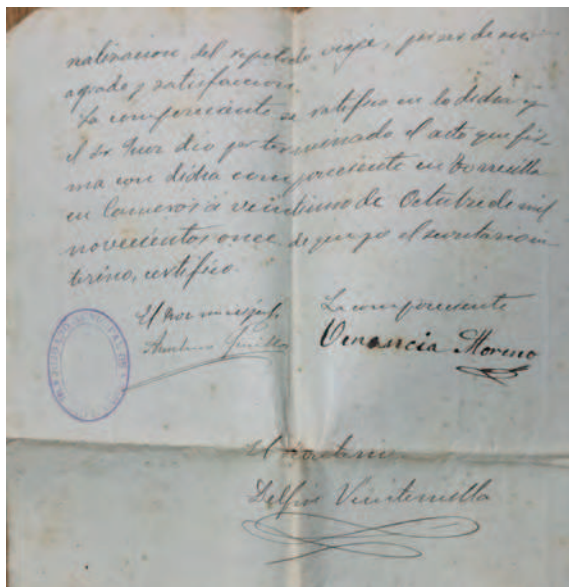 realizacion del repetido viaje, por ser de su
agrado y satisfaccion.
La compareciente se ratifica en lo dicho y
el Sr Juez dio por terminado el acto que fir-
ma con dicha compareciente en Torrecilla
en Cameros a veintiuno de Octubre de mil
novecientos once de que yo el secretario in-
terino, certifico.
El Juez municipal
La compareciente
Venancia Moreno
El
Delfin Vinientemilla